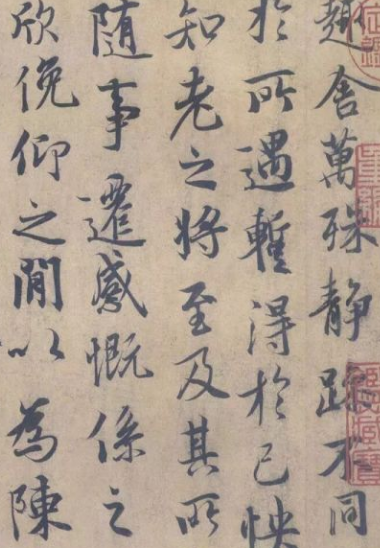 趣舍萬殊静躁不同
於所遇暫得於己怏
知老之将至及其所
隨事遷感慨係之
欣俛仰之閒以為陳